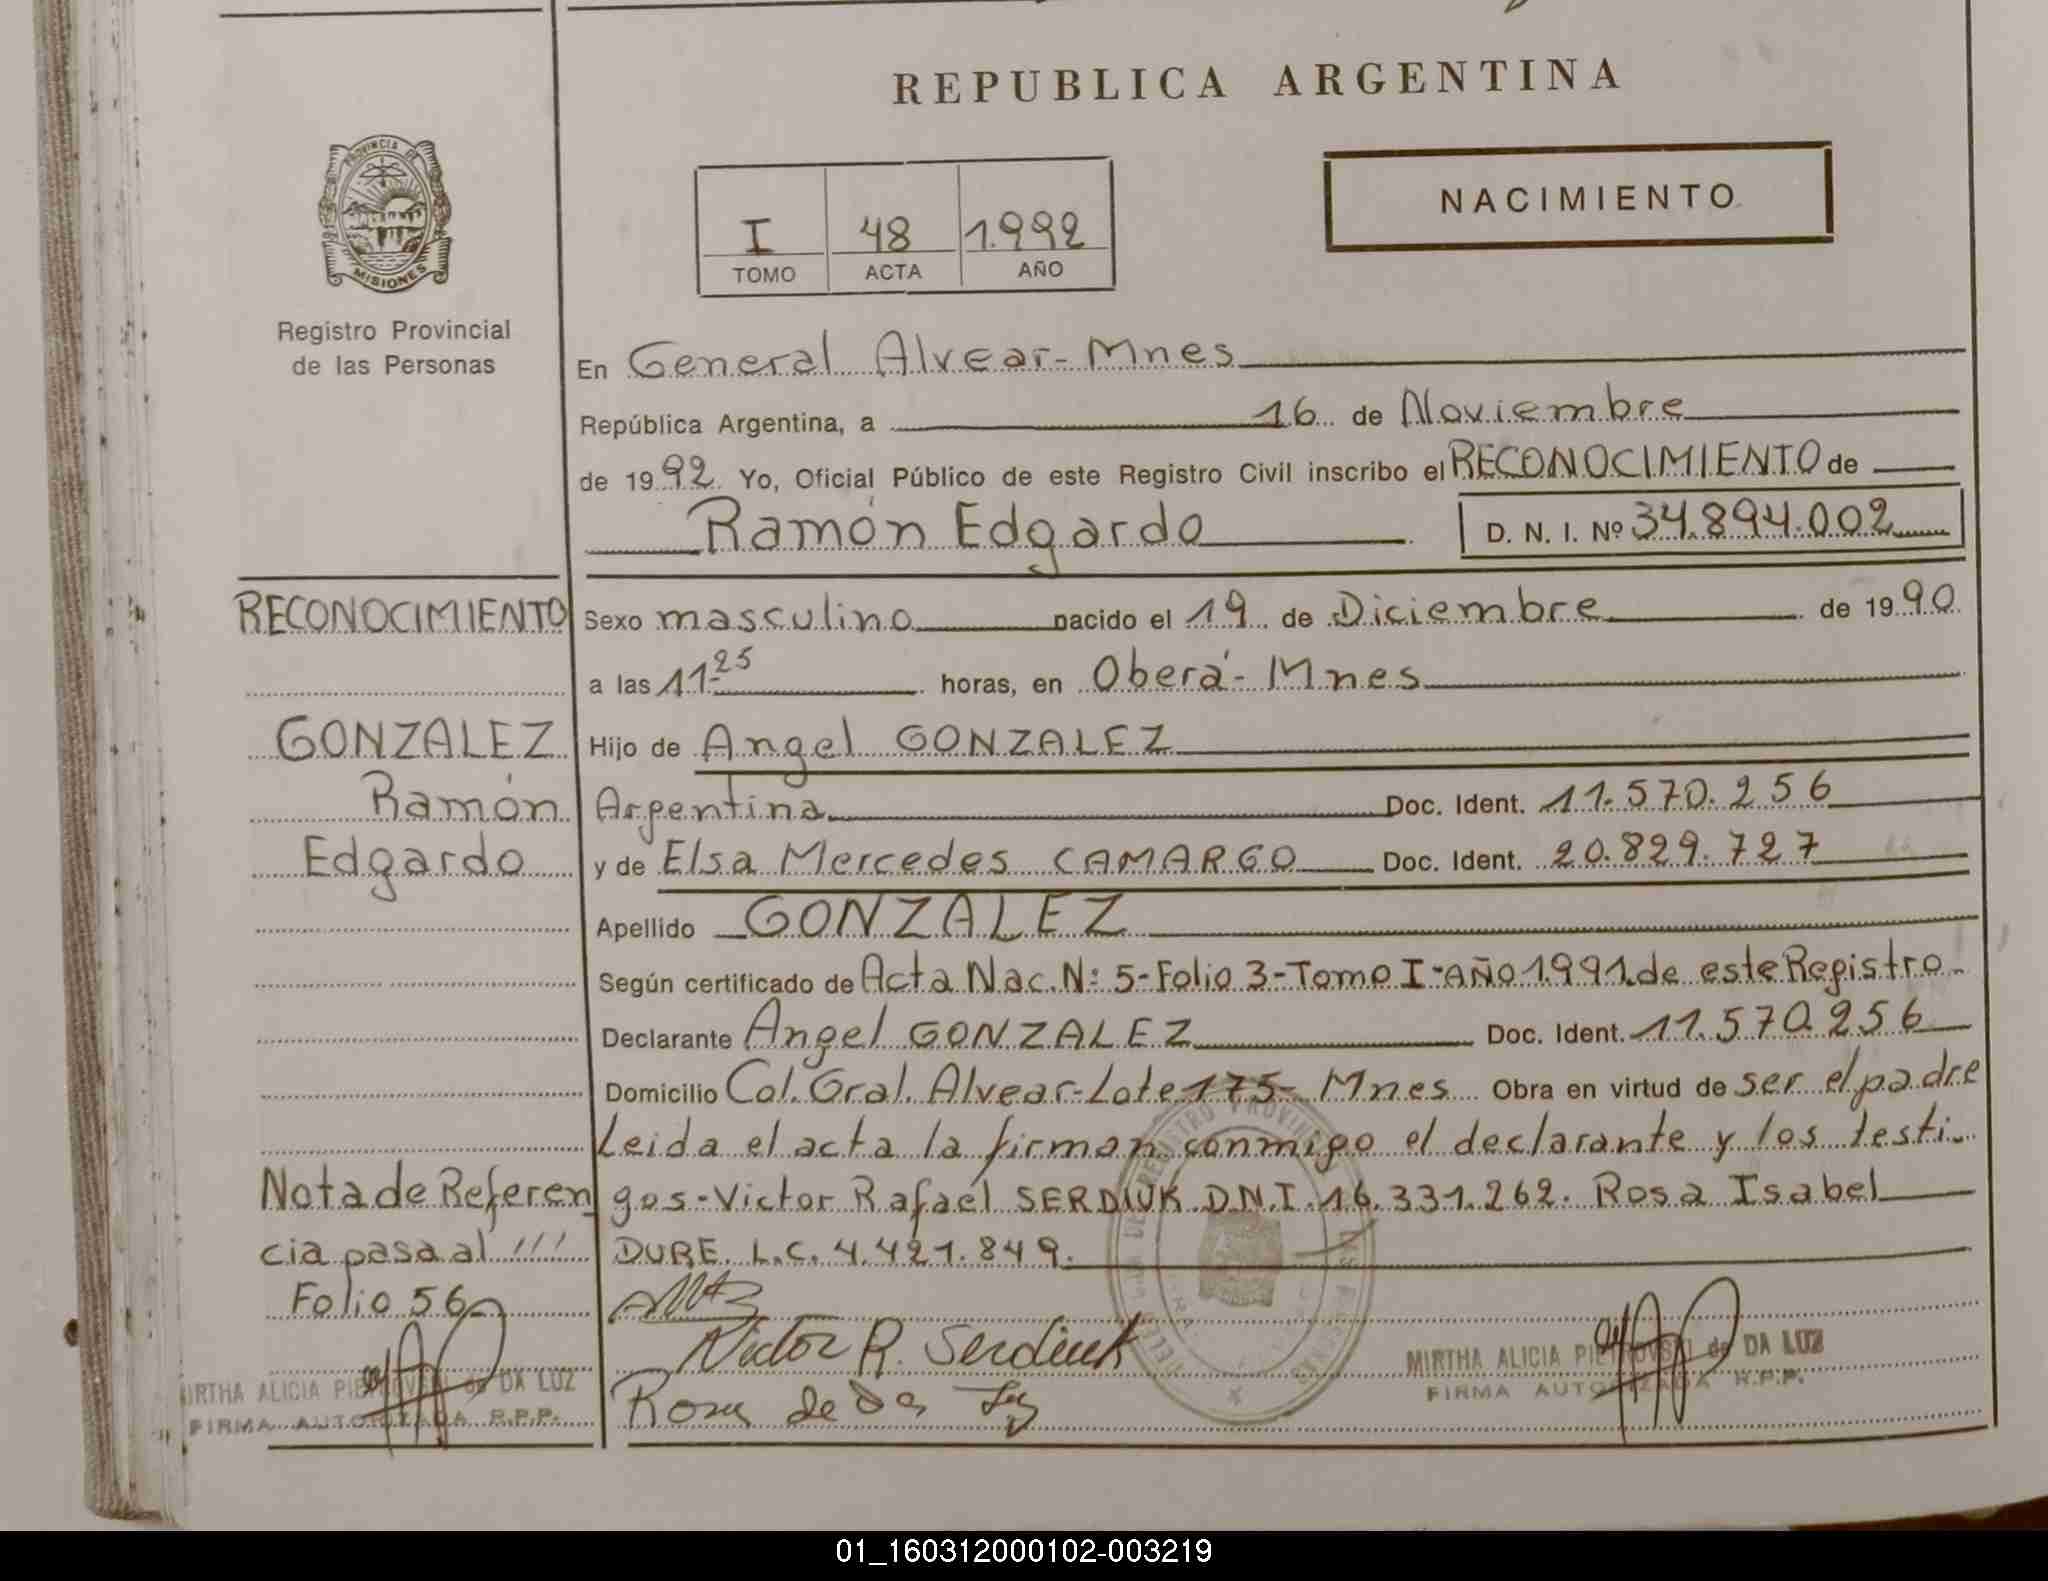 REPUBLICA ARGENTINA
PROVINCIA DE
MISIONES
Registro Provincial
de las Personas
I 48 1.992
TOMO ACTA AÑO
NACIMIENTO
En General Alvear-Mnes
República Argentina, a 16 de Noviembre
de 1992 Yo, Oficial Público de este Registro Civil inscribo el RECONOCIMIENTO de
Ramón Edgardo D. N. I. Nº 34.894.002
RECONOCIMIENTO
GONZALEZ
Ramón
Edgardo
Nota de Referen
cia pasa al
Folio 56
MIRTHA ALICIA de DA LUZ
FIRMA AUTORIZADA R.P.P.
Sexo masculino nacido el 19 de Diciembre de 1990
a las 11-25 horas, en Oberá-Mnes
Hijo de Angel GONZALEZ
Argentina Doc. Ident. 11.570.256
y de Elsa Mercedes CAMARGO Doc. Ident. 20.829.727
Apellido GONZALEZ
Según certificado de Acta Nac. N: 5-Folio 3-Tomo I-AÑO 1.991 de este Registro-
Declarante Angel GONZALEZ Doc. Ident. 11.570.256
Domicilio Col. Gral. Alvear-Lote 175- Mnes Obra en virtud de ser el padre
Leida el acta la firman conmigo el declarante y los testi-
gos-Victor Rafael SERDIUK D.N.I. 16.331.262. Rosa Isabel
DURE. L.C. 4.421.849.
Victor R. Serdiuk
Rosa de Da
MIRTHA ALICIA de DA LUZ
FIRMA AUTORIZADA R.P.P.
01_160312000102-003219